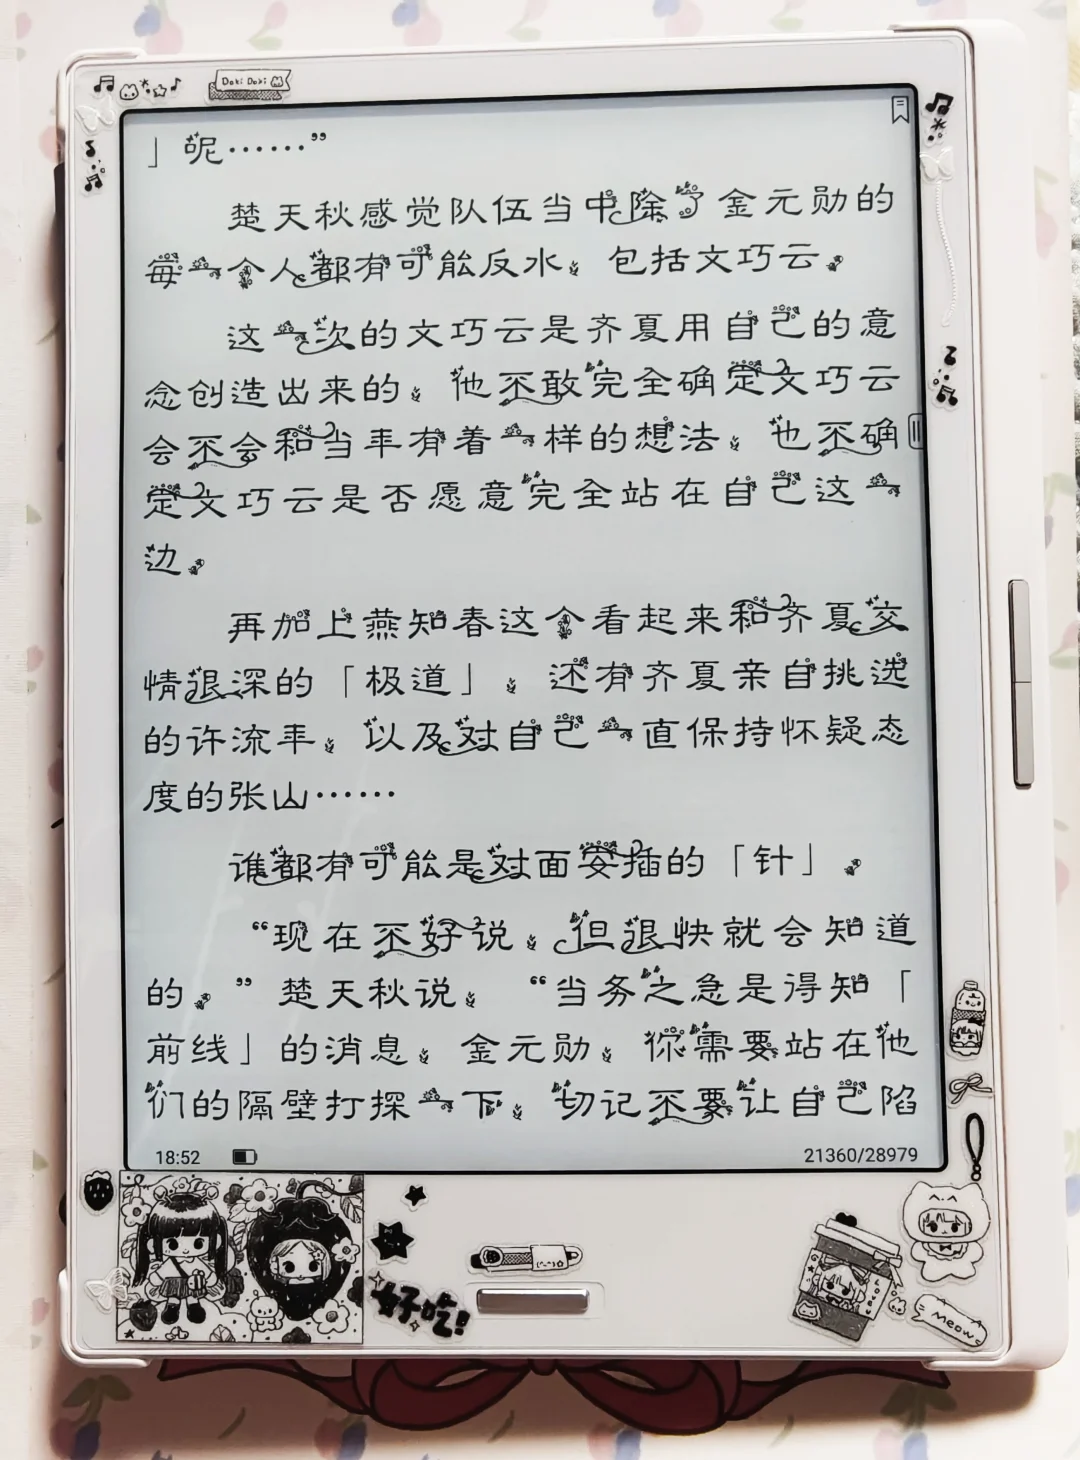 Doki Doki
」呢……”
楚天秋感觉队伍当中除了金元勋的
每一个人都有可能反水，包括文巧云。
这一次的文巧云是齐夏用自己的意
念创造出来的，他不敢完全确定文巧云
会不会和当年有着一样的想法，也不确
定文巧云是否愿意完全站在自己这一
边。
再加上燕知春这个看起来和齐夏交
情很深的「极道」，还有齐夏亲自挑选
的许流年，以及对自己一直保持怀疑态
度的张山……
谁都有可能是对面安插的「针」。
“现在不好说，但很快就会知道
的。”楚天秋说，“当务之急是得知「
前线」的消息，金元勋，你需要站在他
们的隔壁打探一下，切记不要让自己陷
18:52
21360/28979
好吃!
Meow